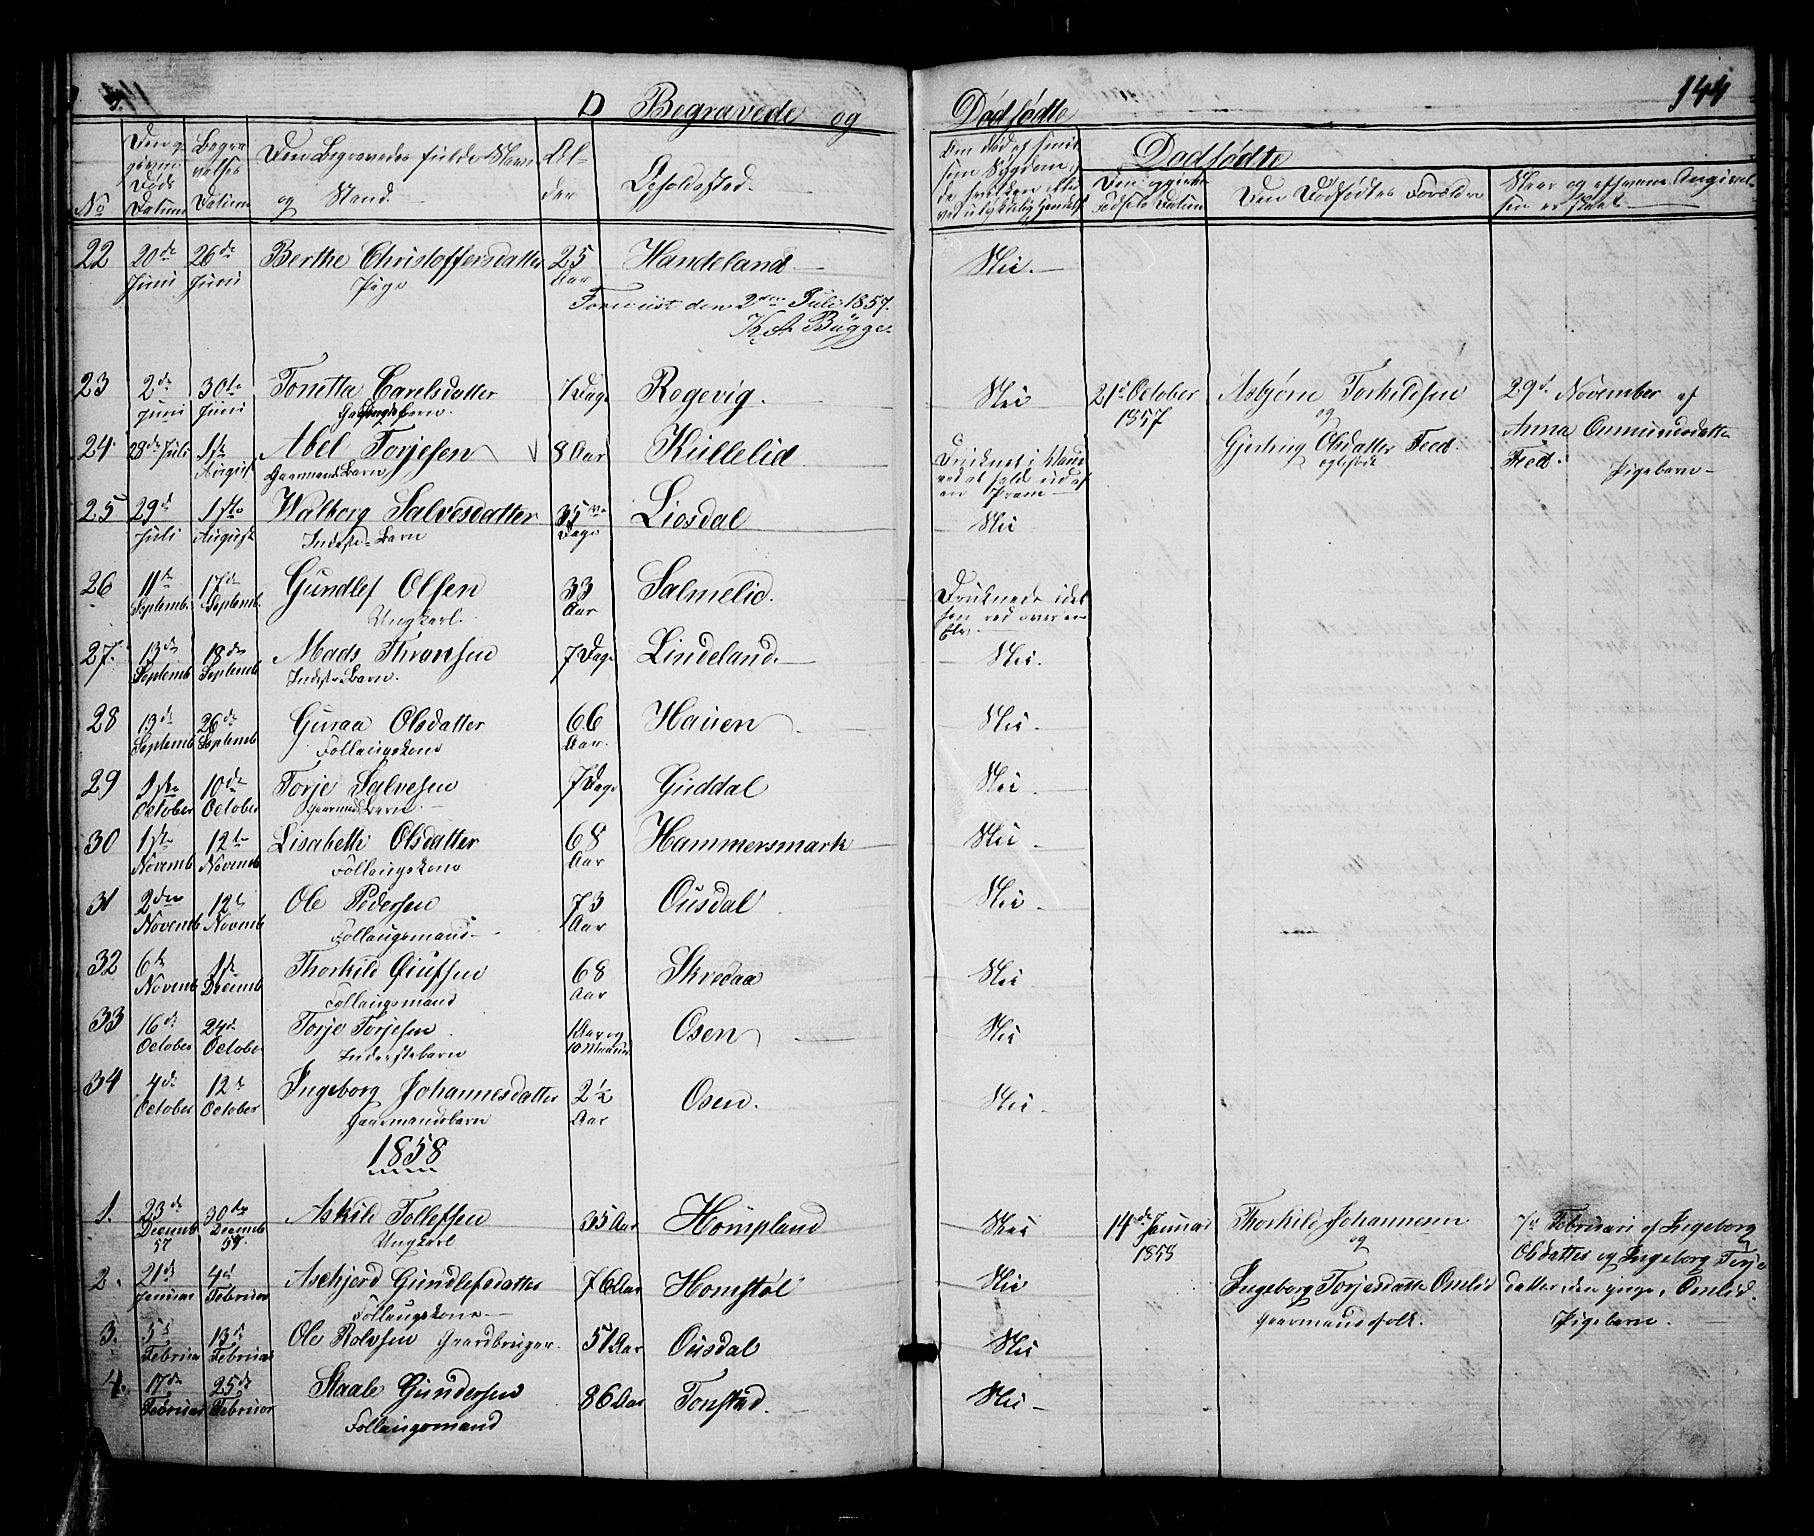 144
D Begravede og Dødfødte
No
Begravelses Datum
Den Begravedes fulde Navn og Stand.
Alder
Opholdssted.
Dødfødte
Den Dødfødtes Forældre
22 20de Juni 26de Juni Berthe Christoffersdatter Pige 25 Aar Handeland Nei.
den 2den Juli 1857.
K. A. Bügge
23 2de Juni 30te Juni Tonetta Carelsdatter 7 Dage Rogevig. Nei
21de October 1857 Asbjørn Torkildsen og Gjertrug Olsdatter Feed. 29de November af Anna Ommundsdatter Feed. Pigebarn
24 28de Juli 1ste August Abel Torjesen Gaarmands Barn 8 Aar Küllelid en Pram
25 29de Juli 1ste August Walborg Salvesdatter Inderste-Barn 35 Dage Liosdal Nei
26 11te Septemb. 17de Septemb. Gundlef Olsen Ungkarl. 33 Aar Salmelid. Druknede
27. 13de Septemb 18de Septemb Mads Thronsen Inderste Barn. 7 Dage Lindeland. Nei.
28 13de Septemb 26de Septemb Guraa Olsdatter Føllaugskone 66 Aar. Hauen Nei.
29 1ste October 10de October Torje Salvesen Gaarmands Barn. 7 Dage Guddal Nei
30 1ste Novemb 12te Novemb Lisabeth Olsdatter Føllaugskone 68 Aar Hammersmark Nei
31 2den Novemb 12te Novemb Ole Pedersen Føllaugsmand 73 Aar Ousdal Nei
32 6te Novemb 1ste Decemb Thorkild Føllaugsmand 68 Aar Skredaa Nei
33 16de October 24de October Torje Torjesen Inderstebarn 1 Aar og 10 Maaned Osen Nei
34 4de October 12te October Ingeborg Johannesdatter Gaarmandsbarn 2½ Aar Osen. Nei
1858
1. 23de Decemb 57 30de Decemb 57. Askild Tollefsen Ungkarl 35 Aar Hompland Nei
14de Januar 1858 Thorkild Johannesen og Ingeborg Torjesdatter Omlid Gaarmandsfolk. 7de Februari af Ingeborg Olsdatter og Ingeborg Torjedatter, den yngre, Omlid. Pigebarn.
2. 21de Januar 4de Februar Aschjerd Gundlefsdatter Føllaugskone 76 Aar Homstøl Nei
3. 5te Februar 13de Februar Ole Rolvsen Gaardbruger. 51 Aar Ousdal Nei
4. 17de Februar 25de Februar Staale Gundersen Føllaugsmand 86 Aar Tonstad. Nei